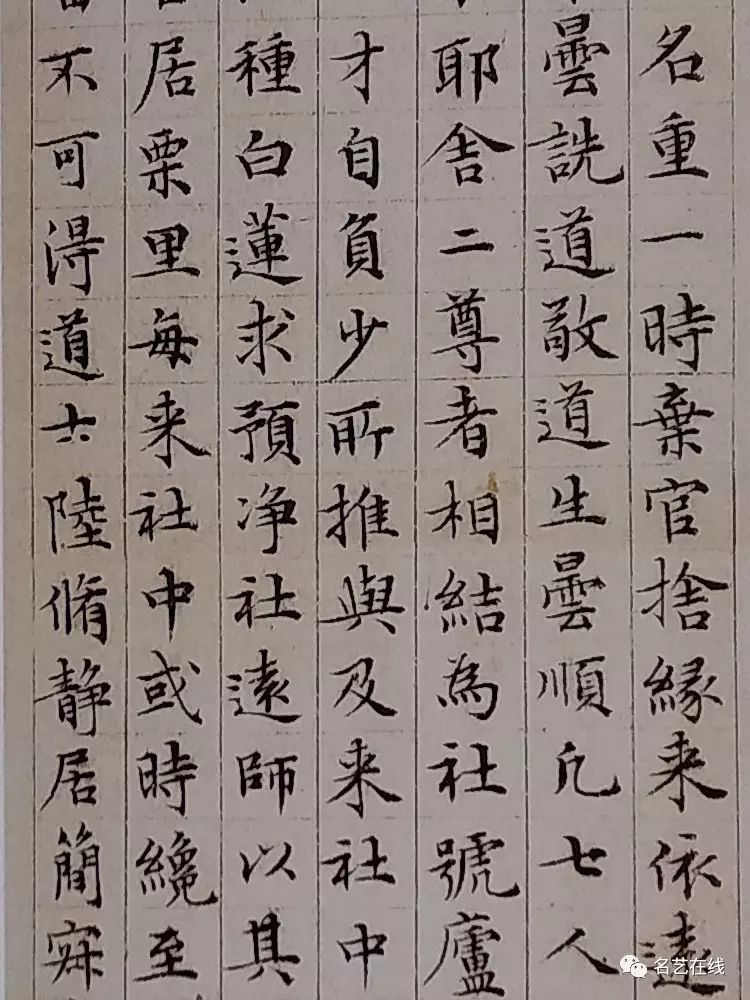 名重一時棄官捨緣来依遠
曇詵道敬道生曇順凡七人
耶舍二尊者相結為社號廬
才自負少所推與及来社中
種白蓮求預净社遠師以其
居栗里每来社中或時纔至
不可得道士陸脩静居簡寂
名艺在线